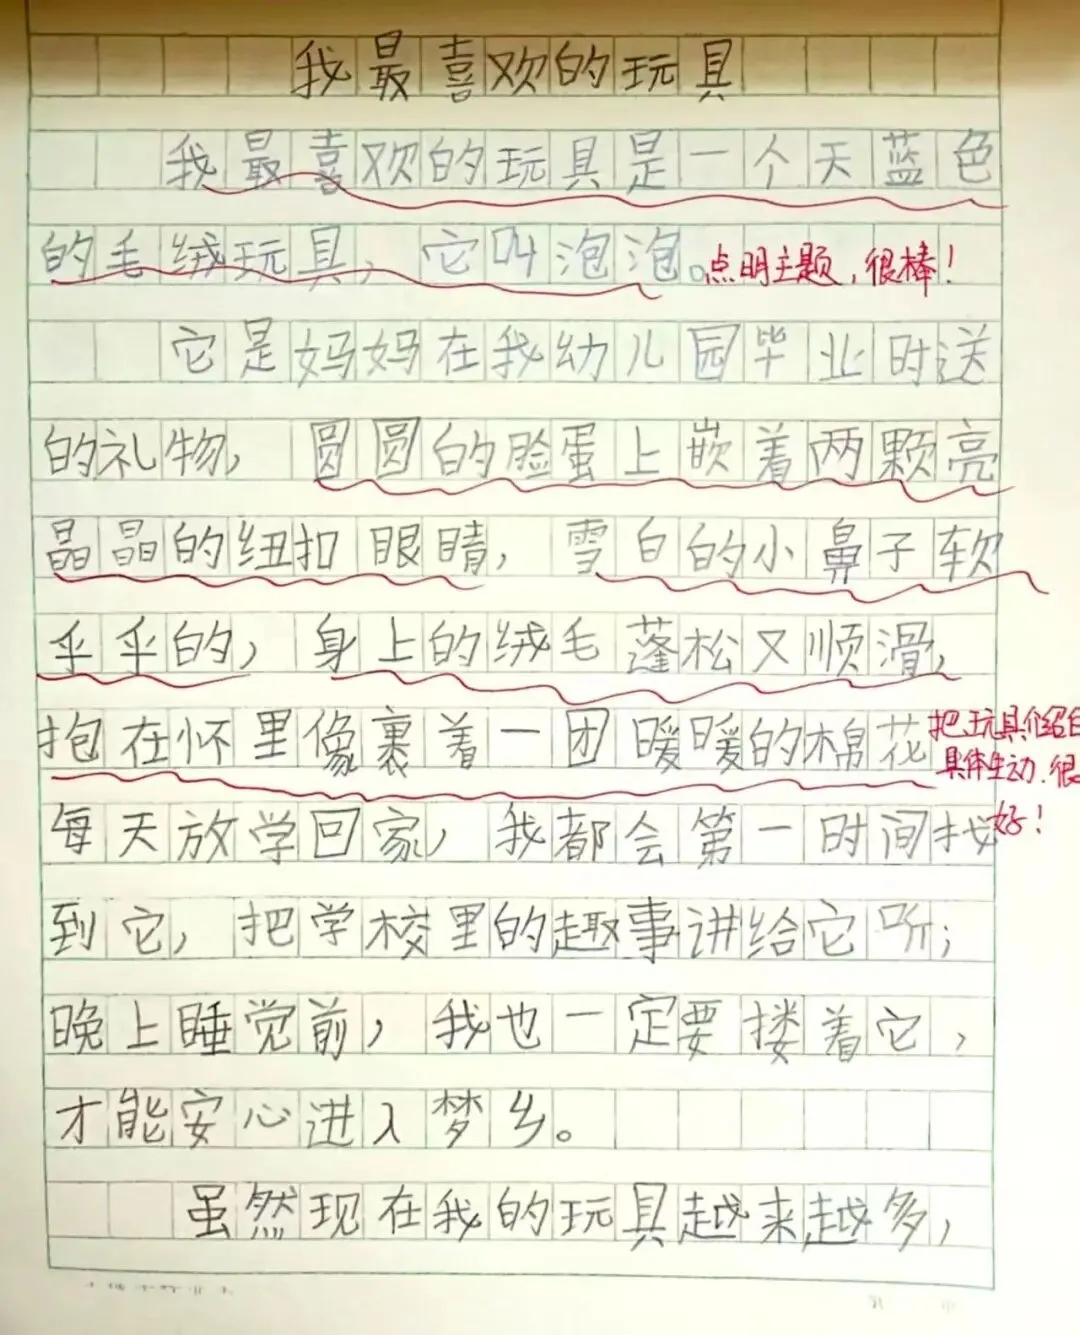 我最喜欢的玩具
我最喜欢的玩具是一个天蓝色
的毛绒玩具，它叫泡泡。
点明主题，很棒！
它是妈妈在我幼儿园毕业时送
的礼物，圆圆的脸蛋上嵌着两颗亮
晶晶的纽扣眼睛，雪白的小鼻子软
乎乎的，身上的绒毛蓬松又顺滑，
抱在怀里像裹着一团暖暖的棉花
把玩具介绍
具体生动.很
好！
每天放学回家，我都会第一时间找
到它，把学校里的趣事讲给它听；
晚上睡觉前，我也一定要搂着它，
才能安心进入梦乡。
虽然现在我的玩具越来越多，